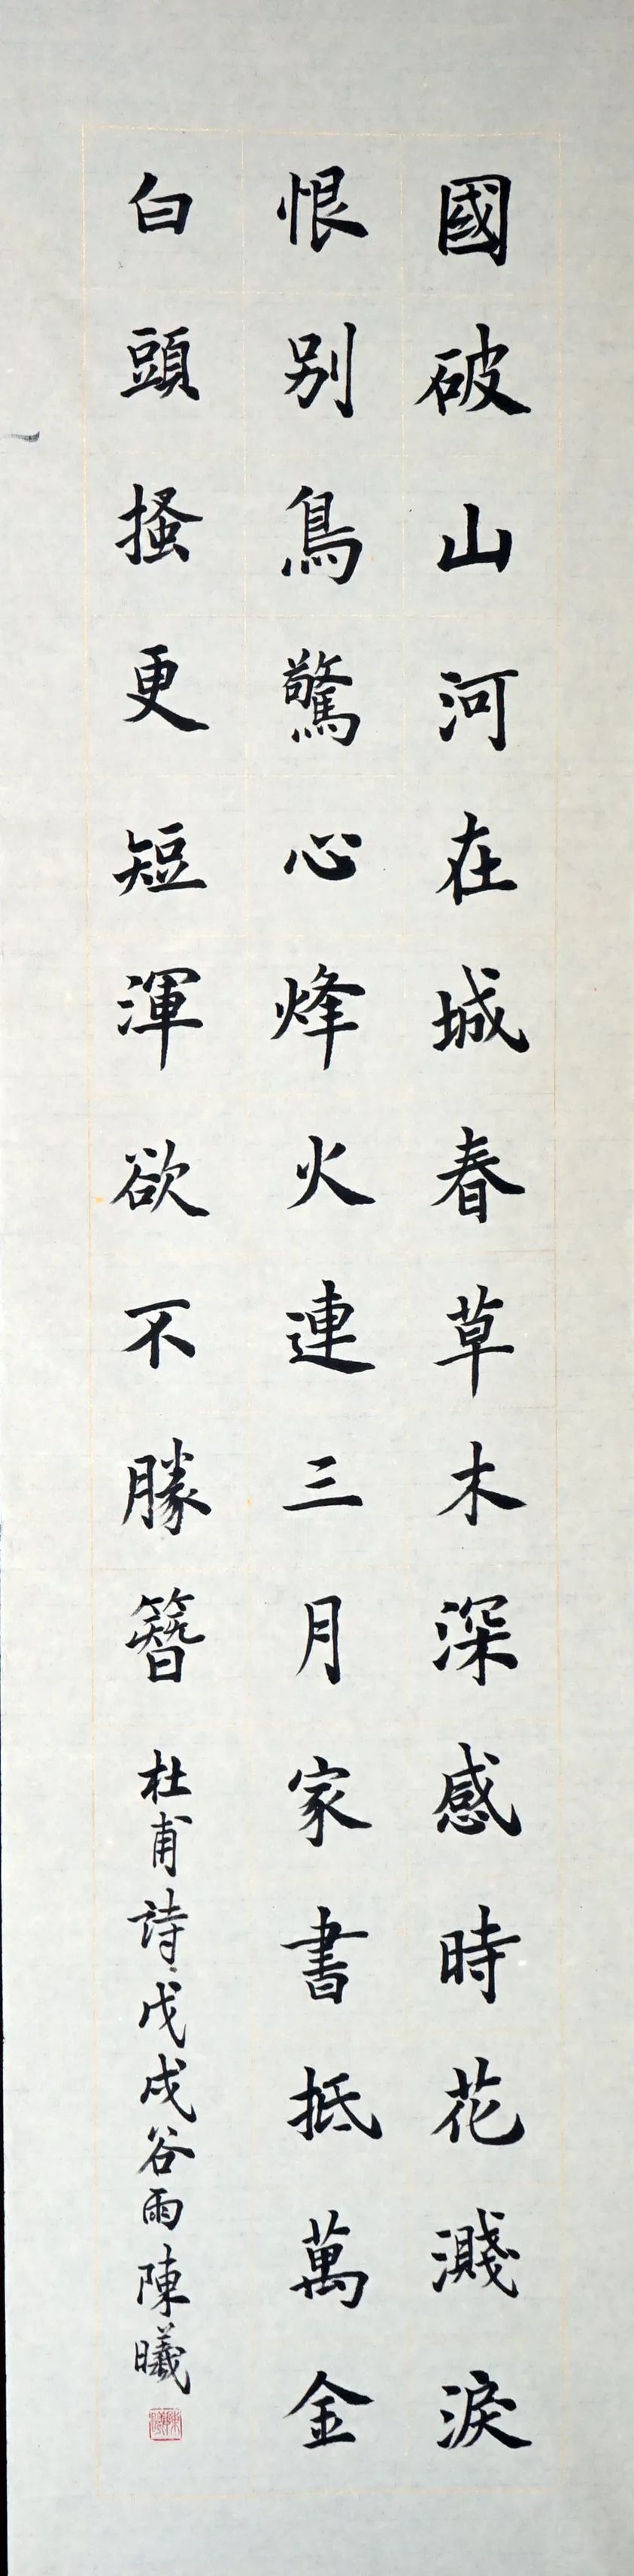 國破山河在城春草木深感時花濺淚
恨别鳥驚心烽火連三月家書抵萬金
白頭搔更短渾欲不勝簪
杜甫詩戊戌谷雨陳曦
陳曦